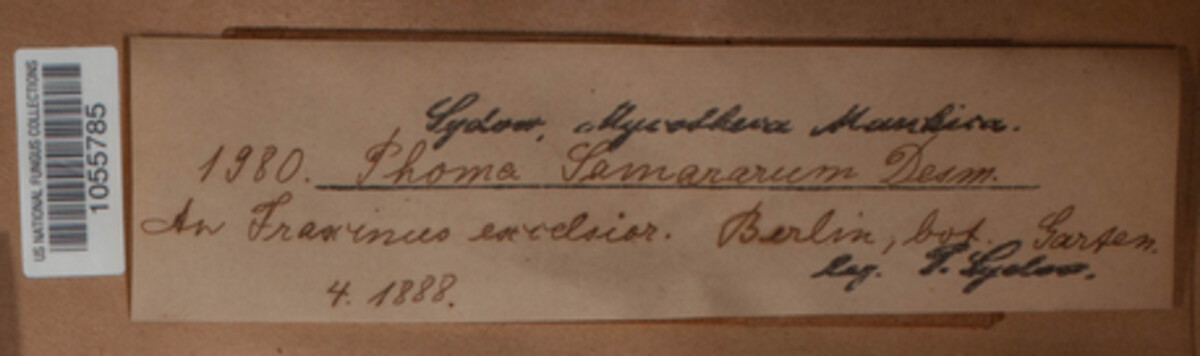 US NATIONAL FUNGUS COLLECTIONS
1055785
Sydow, Mycotheca Marchica.
1980. Phoma Samararum Desm.
An Fraxinus excelsior. Berlin, bot. Garten.
leg. P. Sydow.
4. 1888.